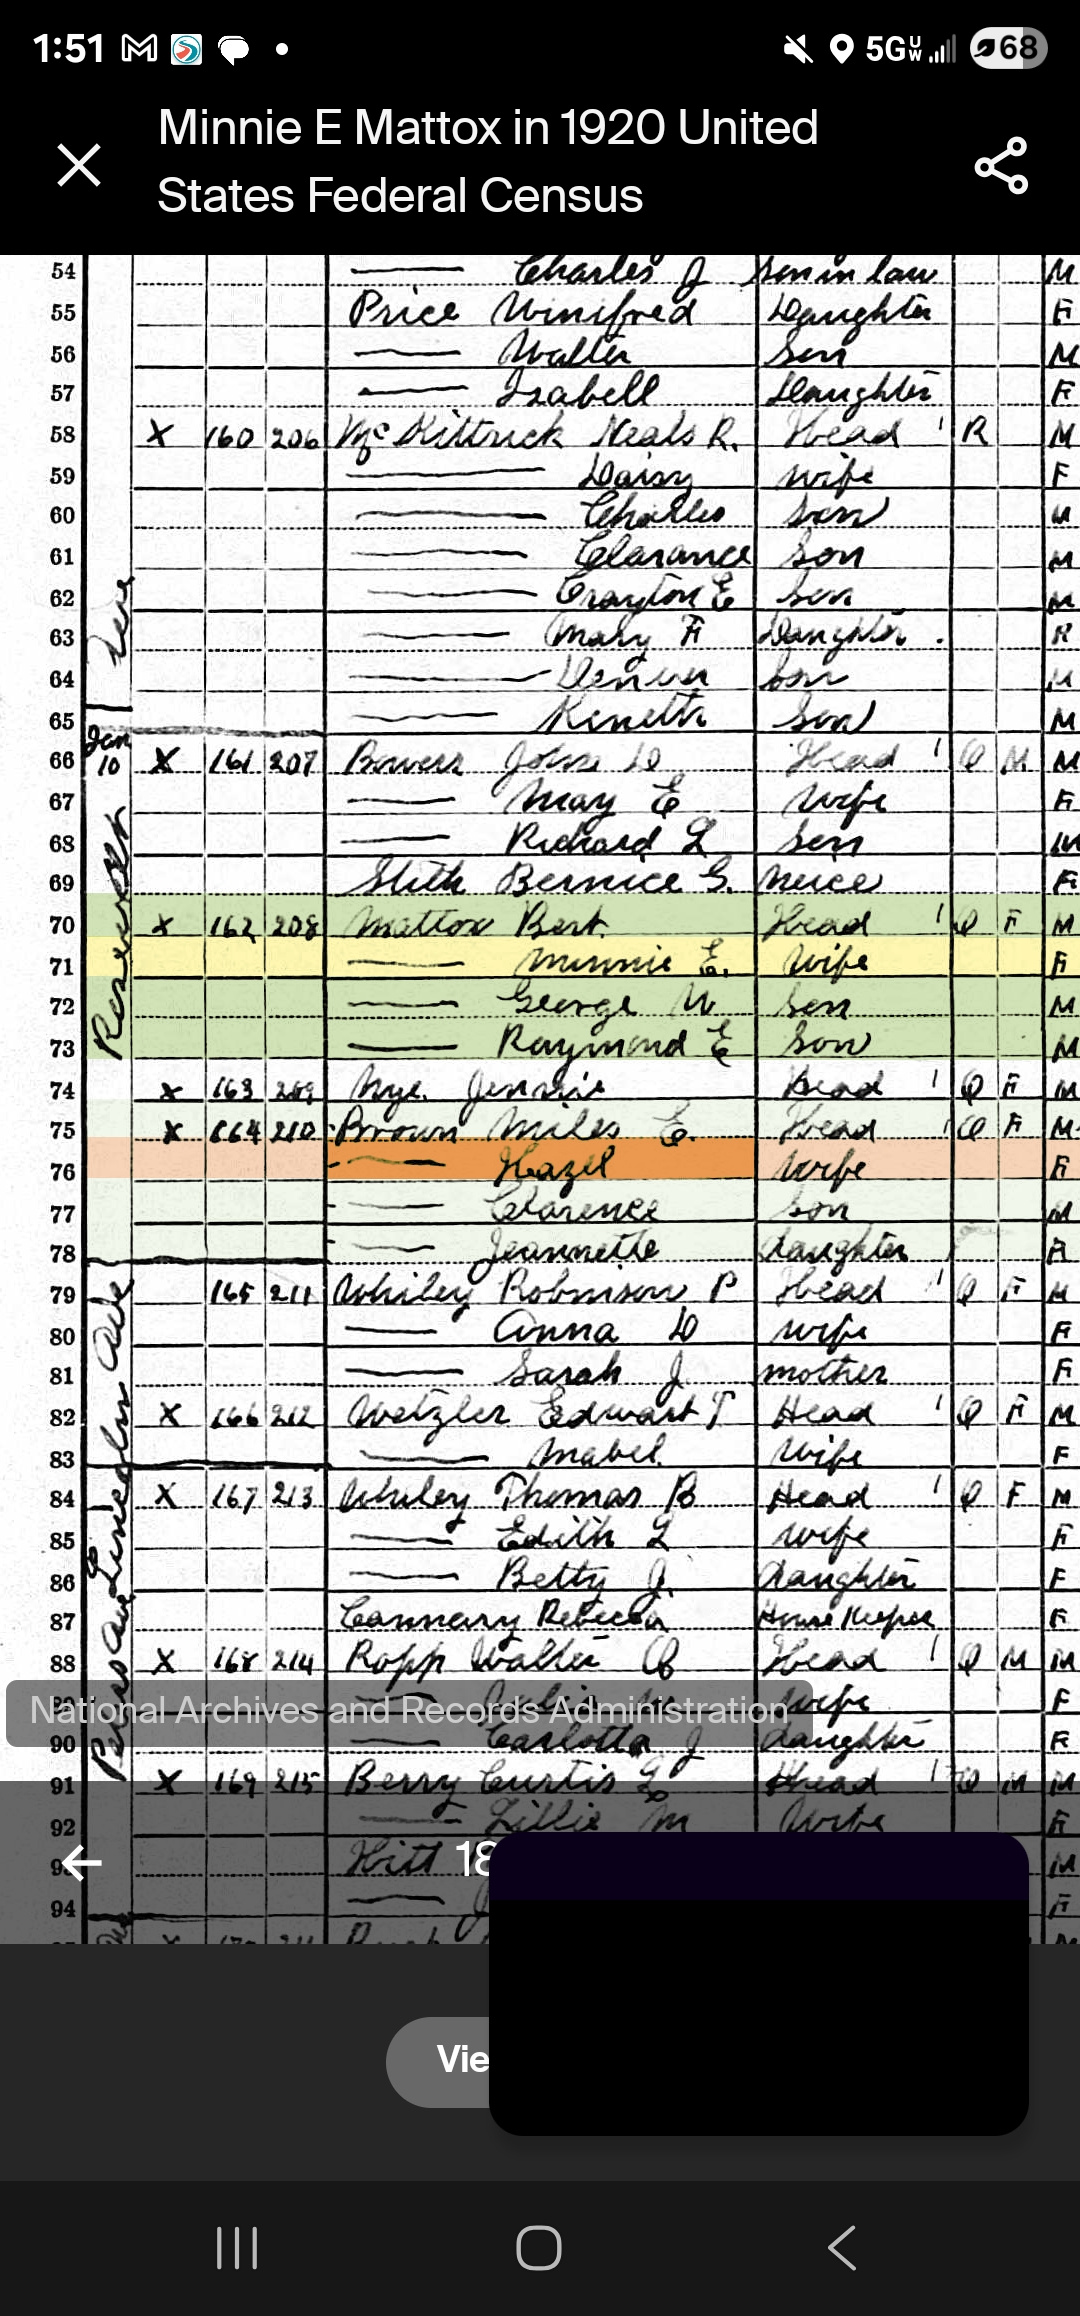 1:51 5G UW 68
Minnie E Mattox in 1920 United
States Federal Census
54 Charles J Son in law M
55 Price Winifred Daughter F
56 Walter Son M
57 Izabell Daughter F
58 X 160 206 McKittrick Neals R. Head 1 R M
59 Daisy Wife F
60 Charles Son M
61 Clarance Son M
62 Crayton E Son M
63 Mary F Daughter F
64 Denver Son M
65 Keneth Son M
Jan
66 10 X 161 207 Bowers John D Head 1 O M M
67 May E Wife F
68 Richard L Son M
69 Stith Bernice G. Neice F
70 X 162 208 Mattox Bert. Head 1 O F M
71 Minnie E. Wife F
72 George W Son M
73 Raymond E Son M
74 X 163 209 Nye. Jennie Head 1 O F M
75 X 164 210 Brown Miles E. Head 1 O F M
76 Hazel Wife F
77 Clarence Son M
78 Jeannette daughter F
79 165 211 Whiley Robinson P Head 1 O F M
80 Anna D Wife F
81 Sarah J. mother F
82 X 166 212 Wetzler Edwart T Head 1 O F M
83 Mabel. Wife F
84 X 167 213 Whiley Thomas B Head 1 O F M
85 Edith L Wife F
86 Betty J. daughter F
87 Cannary Rebecca House Keeper F
88 X 168 214 Ropp Walter B Head 1 O M M
National Archives and Records Administration
Wife F
90 Carlotta J daughter F
91 X 169 215 Berry Curtis L Head 1 O M M
92 Lillie M Wife F
Hitt M
94 F
18
Vie